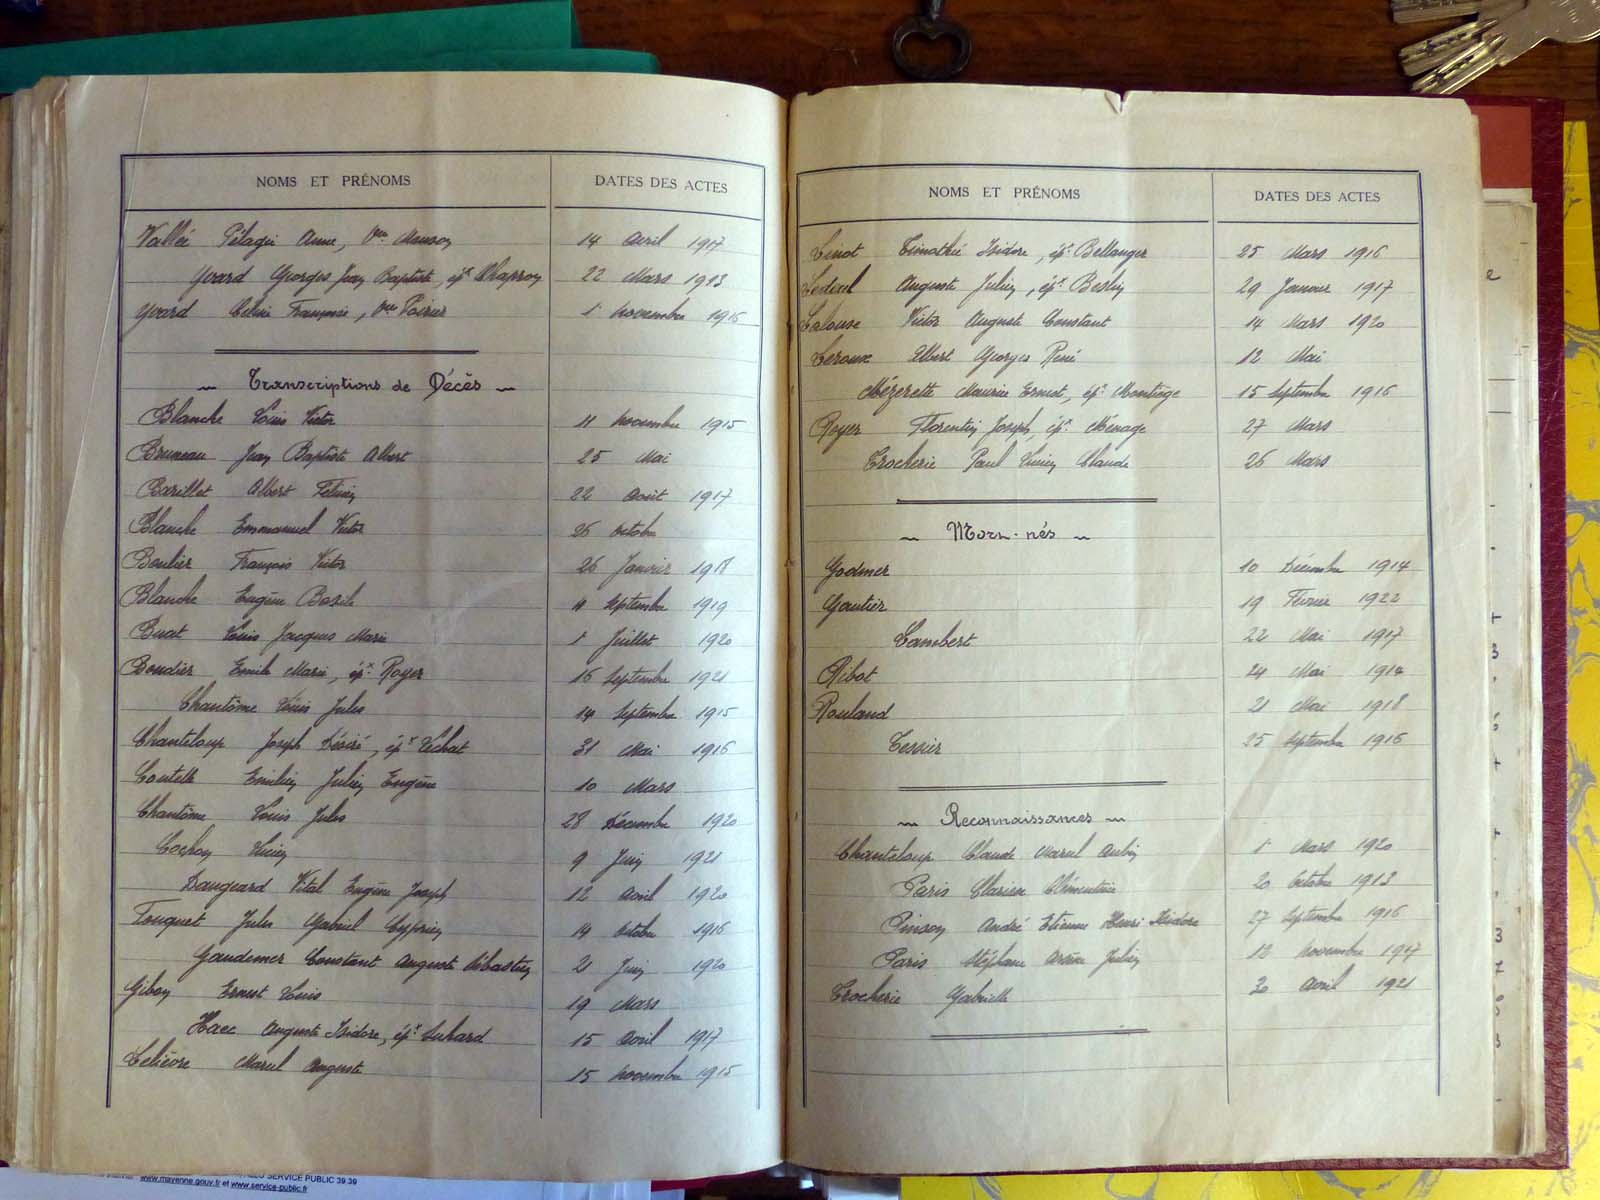 NOMS ET PRÉNOMS DATES DES ACTES
Vallée Pélagie Anne, Vve 14 Avril 1917
Yvard Georges Jean Baptiste, épx Chapron 22 Mars 1913
Yvard Françoise, Vve Poirier 1 Novembre 1916
Transcriptions de Décès
Blanche Louis Victor 11 Novembre 1915
Bruneau Jean Baptiste Albert 25 Mai
Barillet Albert 22 Août 1917
Blanche Emmanuel Victor 26 Octobre
Boulier François Victor 26 Janvier 1918
Blanche Eugène Basile 11 Septembre 1919
Buat Louis Jacques Marie 1 Juillet 1920
Boudier Emile Marie, épx Royer 16 Septembre 1921
Chantôme Louis Jules 14 Septembre 1915
Chanteloup Joseph Désiré, épx Léchat 31 Mai 1916
Coutelle Emilien Julien Eugène 10 Mars
Chantôme Louis Jules 28 Décembre 1920
Cochon Lucien 9 Juin 1921
Daugeard Vital Eugène Joseph 12 Avril 1920
Fouquet Jules Gabriel Cyprien 14 Octobre 1916
Gaudemer Constant Auguste Sébastien 21 Juin 1920
Gibon Ernest Louis 19 Mars
Haec Auguste Isidore, épx Suhard 15 Avril 1917
Lelièvre Marcel Auguste 15 Novembre 1915
NOMS ET PRÉNOMS DATES DES ACTES
Linot Timothée Isidore, épx Bellanger 25 Mars 1916
Auguste Julien, épx 29 Janvier 1917
Lalouse Victor Auguste Constant 14 Mars 1920
Leroux Albert Georges René 12 Mai
Mézerette Maurice Ernest, épx Montiège 15 Septembre 1916
Royer Florentin Joseph, épx Ménage 27 Mars
Trocherie Paul Lucien Claude 26 Mars
Morts-nés
Godmer 10 Décembre 1914
Gautier 19 Février 1922
Lambert 22 Mai 1917
Ribot 24 Mai 1914
Rouland 21 Mai 1918
Tessier 25 Septembre 1916
Reconnaissances
Chanteloup Claude Marcel Aubin 1 Mars 1920
Paris Clarisse Clémentine 20 Octobre 1913
Pinson André Etienne Henri Isidore 27 Septembre 1916
Paris Stéphane Arsène Julien 12 Novembre 1917
Trocherie Gabrielle 30 Avril 1921
SERVICE PUBLIC 39.39
www.mayenne.gouv.fr et www.service-public.fr